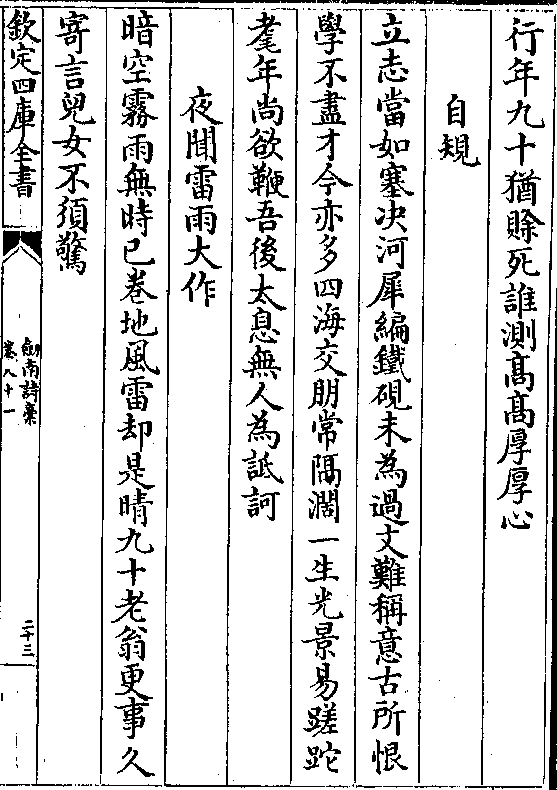 行年九十猶賒死誰測髙髙厚厚心
自規
立志當如塞决河犀編鐵硯未為過文難稱意古所恨
學不盡才今亦多四海交朋常隔濶一生光景易蹉跎
耄年尚欲鞭吾後太息無人為詆訶
夜聞雷雨大作
暗空霧雨無時已卷地風雷却是晴九十老翁更事久
寄言兒女不須驚
欽定四庫全書
劍南詩藁
卷八十一
二十三